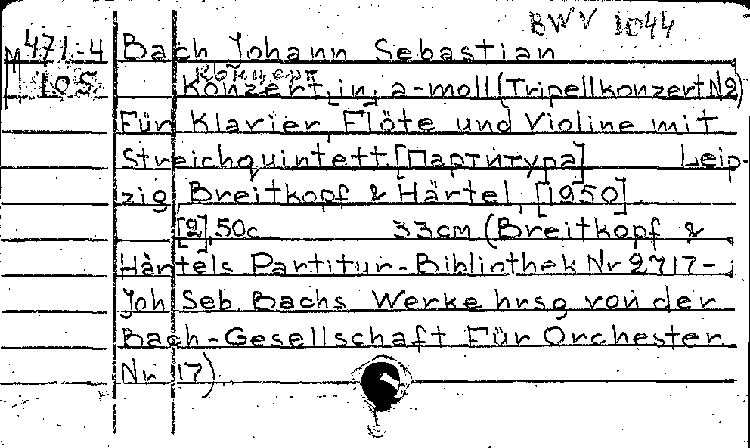 BWV 1044
M 471-4 Bach Johann Sebastian
105 Концерт
Konzert, in, a-moll (Tripellkonzert N2)
Für Klavier, Flöte und Violine mit
Streichquintett. [Партитура] Leip-
zig, Breitkopf & Härtel, [1950].
[2], 50c. 33cm (Breitkopf &
Härtels Partitur-Bibliothek Nr 2717-;
Joh. Seb. Bachs Werke hrsg von der
Bach-Gesellschaft Für Orchester
Nr 17).